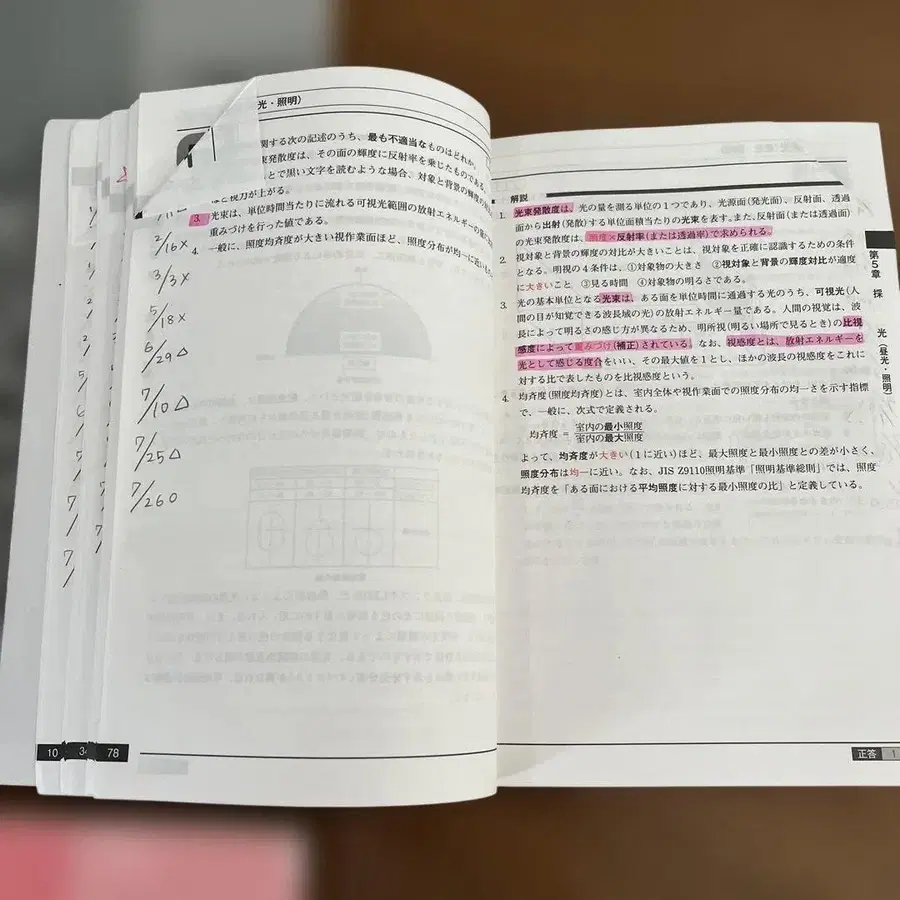 光・照明）
関する次の記述のうち、最も不適当なものはどれか。
束発散度は、その面の輝度に反射率を乗じたものである。
とで黒い文字を読むような場合、対象と背景の輝度の
ほど視力が上がる。
3. 光束は、単位時間当たりに流れる可視光範囲の放射エネルギーの量
重みづけを行った値である。
4. 一般に、照度均斉度が大きい視作業面ほど、照度分布が均一に近いもの
2/16×
3/3×
5/18×
6/29△
7/10△
7/25△
7/26○
10
34
78
解説
1. 光束発散度は、光の量を測る単位の1つであり、光源面(発光面)、反射面、透過
面から出射(発散)する単位面積当たりの光束を表す。また、反射面(または透過面)
の光束発散度は、照度×反射率(または透過率)で求められる。
2. 視対象と背景の輝度の対比が大きいことは、視対象を正確に認識するための条件
となる。明視の4条件は、①対象物の大きさ ②視対象と背景の輝度対比が適度
に大きいこと ③見る時間 ④対象物の明るさである。
3. 光の基本単位となる光束は、ある面を単位時間に通過する光のうち、可視光(人
間の目が知覚できる波長域の光)の放射エネルギー量である。人間の視覚は、波
長によって明るさの感じ方が異なるため、明所視(明るい場所で見るとき)の比視
感度によって重みづけ(補正)されている。なお、視感度とは、放射エネルギーを
光として感じる度合をいい、その最大値を1とし、ほかの波長の視感度をこれに
対する比で表したものを比視感度という。
4. 均斉度(照度均斉度)とは、室内全体や視作業面での照度分布の均一さを示す指標
で、一般に、次式で定義される。
均斉度 = 室内の最小照度
室内の最大照度
よって、均斉度が大きい(1に近い)ほど、最大照度と最小照度との差が小さく、
照度分布は均一に近い。なお、JIS Z9110照明基準「照明基準総則」では、照度
均斉度を「ある面における平均照度に対する最小照度の比」と定義している。
第5章 採 光（昼光・照明）
正答 1